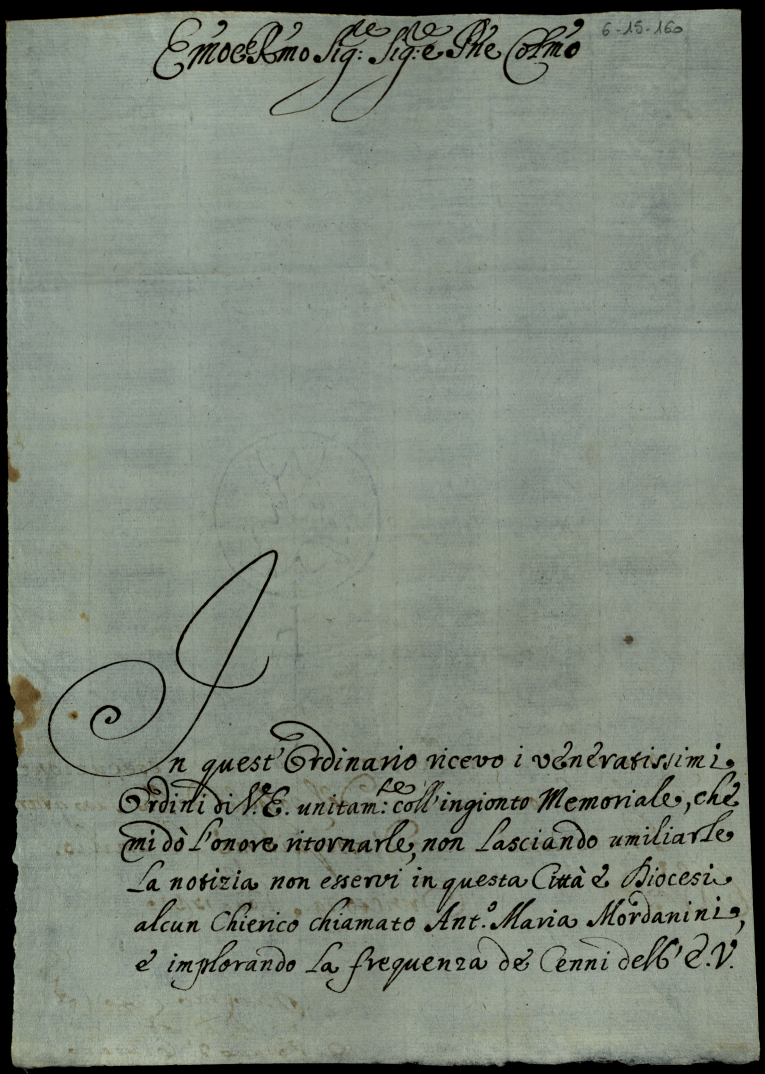 6-15-160
Emo e Rmo Sig:re Sig:re e Pne Colmo
In quest'Ordinario ricevo i veneratissimi
Ordini di V.E. unitam:te coll'ingionto Memoriale, che
mi dò l'onore ritornarle, non lasciando umiliarle
la notizia non esservi in questa Città è Diocesi
alcun Chierico chiamato Ant.o Maria Mordanini,
è implorando la frequenza de Cenni dell'E.V.